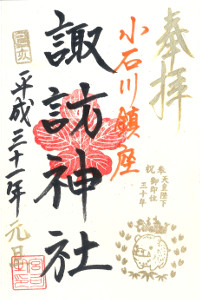 奉拝
小石川鎮座
諏訪神社
平成三十一年元旦
己亥
奉祝
天皇陛下
御即位
三十年